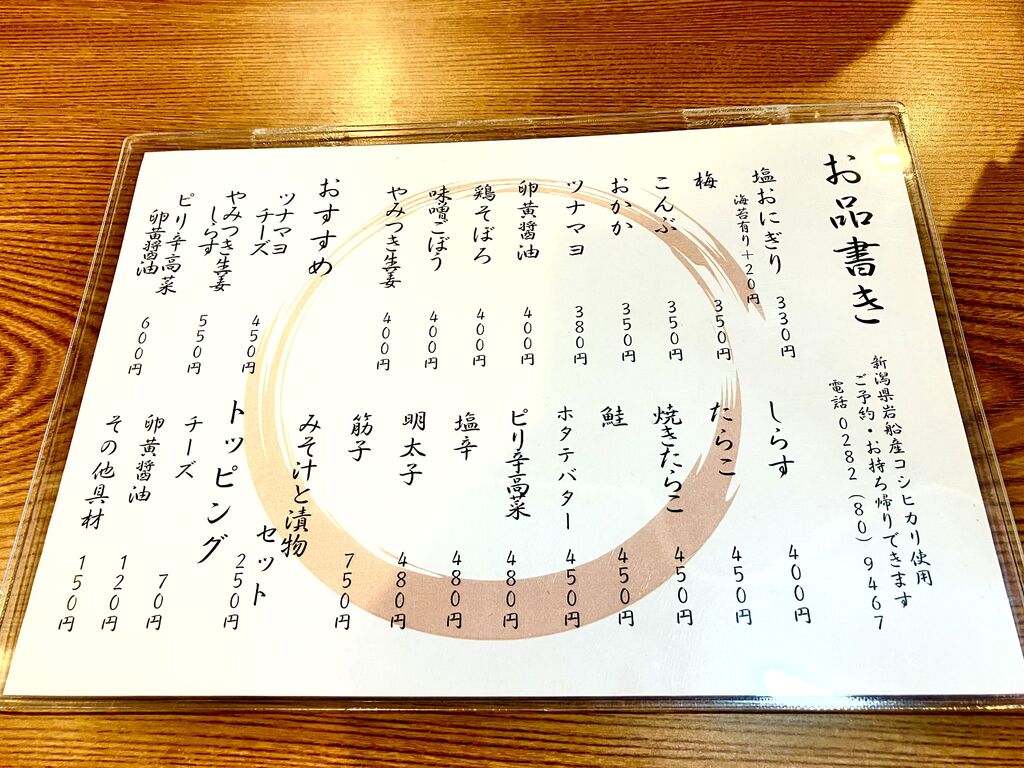 お品書き
新潟県岩船産コシヒカリ使用
ご予約・お持ち帰りできます
電話0282(80)9467
塩おにぎり 330円
海苔有り+20円
梅 350円
こんぶ 350円
おかか 350円
ツナマヨ 380円
卵黄醤油 400円
鶏そぼろ 400円
味噌ごぼう 400円
やみつき生姜 400円
おすすめ
ツナマヨ
チーズ 450円
やみつき生姜
しらす 550円
ピリ辛高菜
卵黄醤油 600円
しらす 400円
たらこ 450円
焼きたらこ 450円
鮭 450円
ホタテバター 450円
ピリ辛高菜 480円
塩辛 480円
明太子 480円
筋子 750円
みそ汁と漬物
セット 250円
トッピング
チーズ 70円
卵黄醤油 120円
その他具材 150円